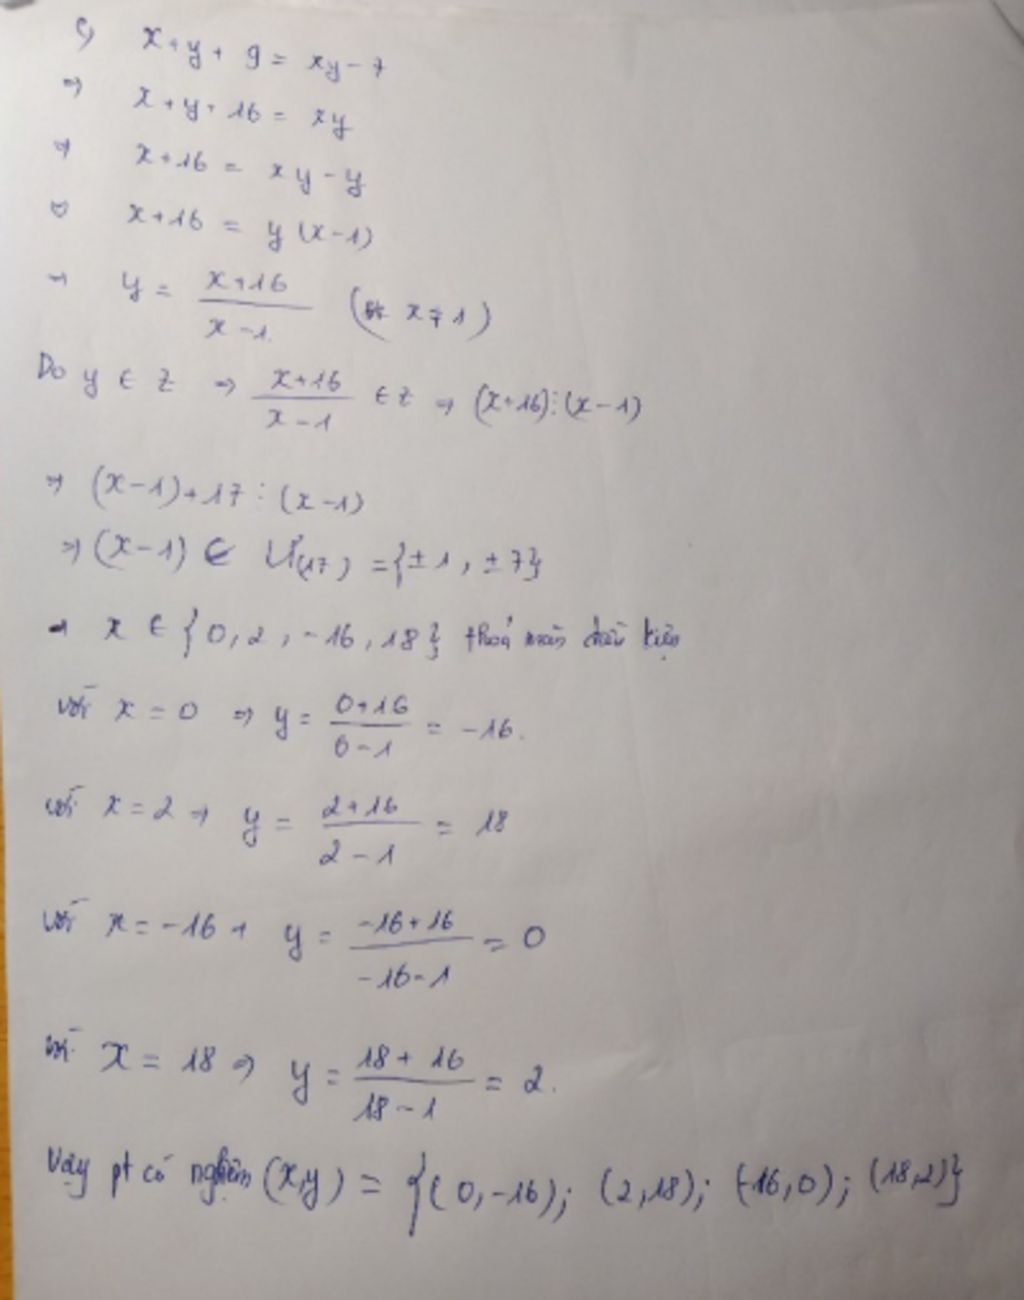 c) x+y+9 = xy-7
⇒ x+y+16 = xy
⇒ x+16 = xy-y
⇔ x+16 = y(x-1)
⇒ y = \frac{x+16}{x-1} (x≠1)
Do y ∈ Z ⇒ \frac{x+16}{x-1} ∈ Z ⇒ (x+16)⋮(x-1)
⇒ (x-1)+17 ⋮ (x-1)
⇒ (x-1) ∈ Ư(17) = {±1, ±7}
⇒ x ∈ {0, 2, -16, 18} thoả mãn điều kiện
với x = 0 ⇒ y = \frac{0+16}{0-1} = -16.
với x = 2 ⇒ y = \frac{2+16}{2-1} = 18
với x = -16 ⇒ y = \frac{-16+16}{-16-1} = 0
với x = 18 ⇒ y = \frac{18+16}{18-1} = 2.
Vậy pt có nghiệm (x,y) = {(0,-16); (2,18); (-16,0); (18,2)}